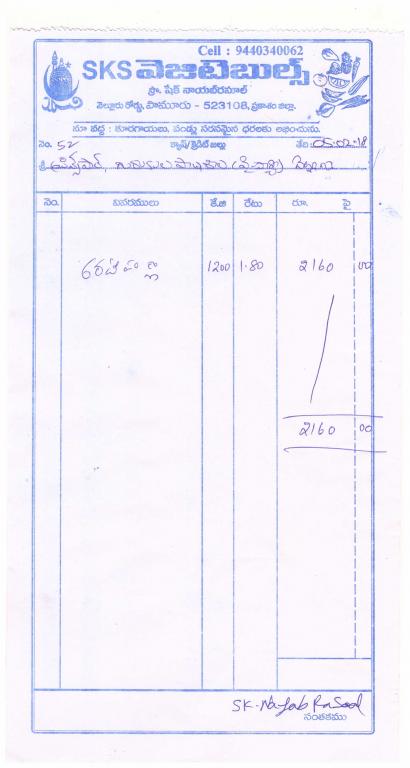 Cell : 9440340062
SKS వెజిటెబుల్స్
ప్రొ. షేక్ నాయబ్‌రసూల్
నెల్లూరు రోడ్డు, పామూరు - 523108, ప్రకాశం జిల్లా.
మా వద్ద : కూరగాయలు, పండ్లు సరసమైన ధరలకు లభించును.
నెం. 52 క్యాష్/క్రెడిట్ బిల్లు తేది : 05-02-18
శ్రీ ప్రిన్సిపాల్, గురుకుల పాఠశాల
నెం. వివరములు కే.జి రేటు రూ. పై
అరటి పండ్లు 1200 1.80 2160 00
2160 00
SK. Nayab Rasool
సంతకము